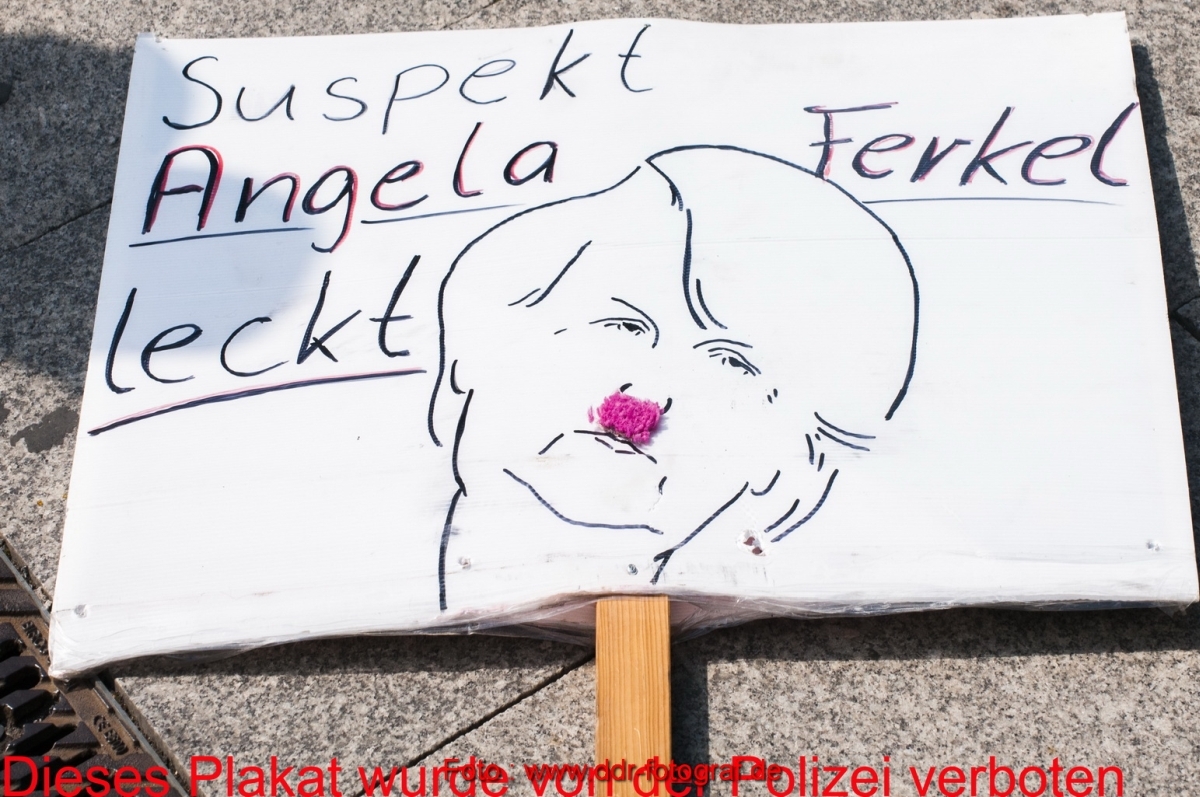 Suspekt
Angela Ferkel
leckt
Dieses Plakat wurde von der Polizei verboten
Foto: www.ddr-fotograf.de